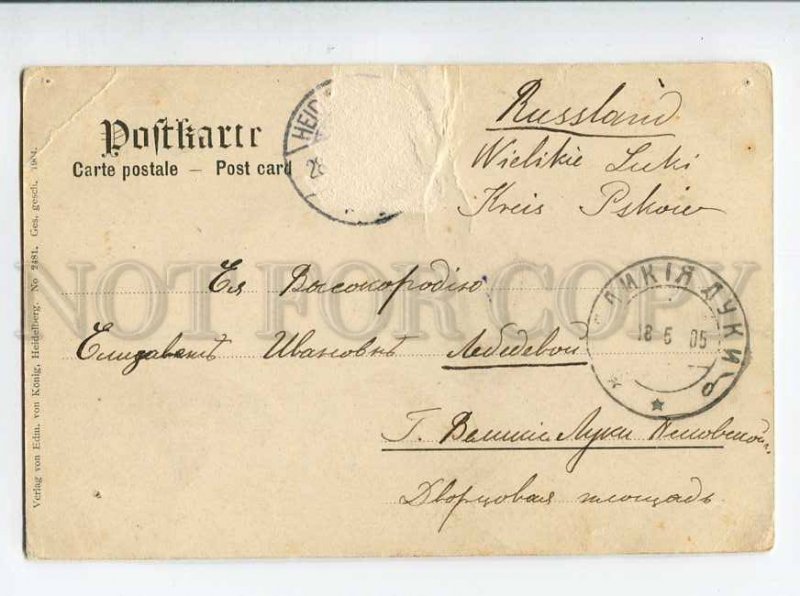 Postkarte
Carte postale – Post card
HEID
28
Russland
Wielikie Luki
Kreis Pskow
NOT FOR COPY
Ея Высокородію
Елизаветѣ Ивановнѣ Лебедевой
ЛИКІЯ ЛУКИ
18 5 05
Г. Великіе Луки Псковской
Дворцовая площадь
Verlag von Edm. von König, Heidelberg. No 2481. Ges. gesch. 1904.